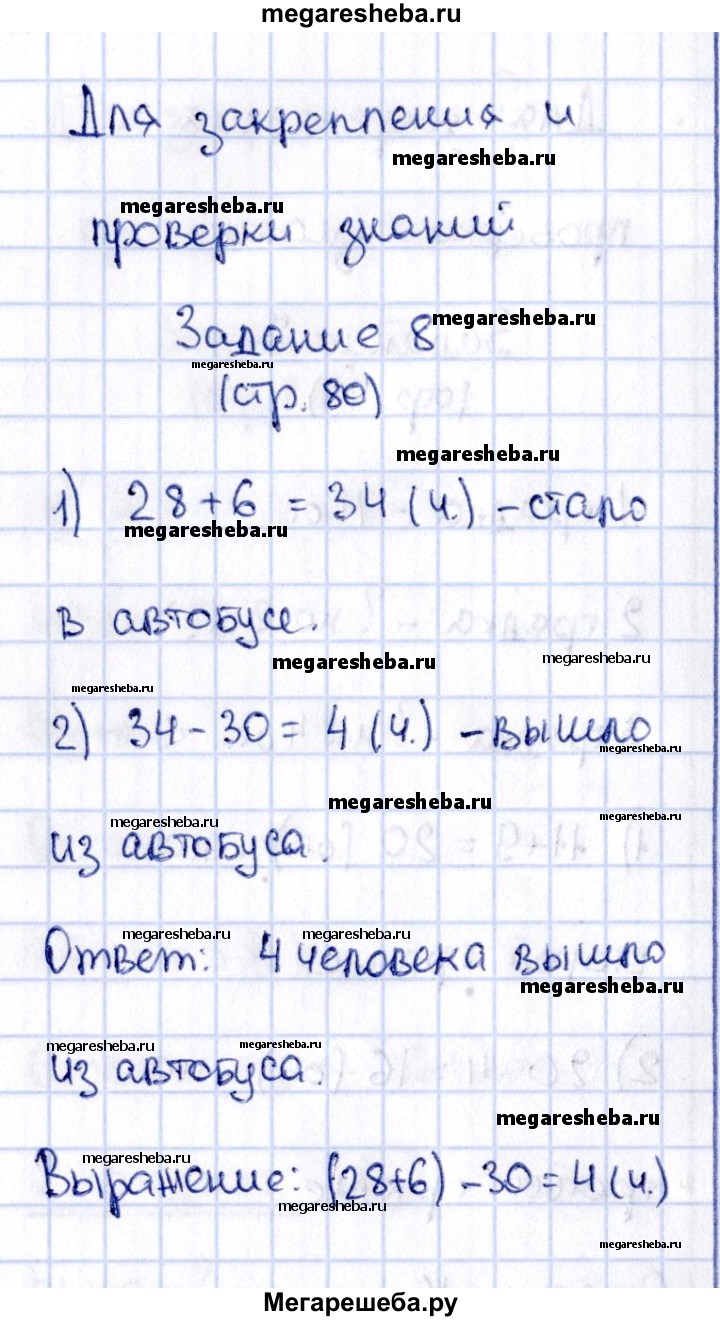 megaresheba.ru
Для закрепления и
megaresheba.ru
megaresheba.ru
проверки знаний
Задание 8 megaresheba.ru
megaresheba.ru
(стр. 80)
megaresheba.ru
1) 28 + 6 = 34 (ч.) - стало
megaresheba.ru
в автобусе.
megaresheba.ru megaresheba.ru
megaresheba.ru
2) 34 - 30 = 4 (ч.) - вышло
megaresheba.ru
megaresheba.ru
megaresheba.ru megaresheba.ru
из автобуса.
megaresheba.ru megaresheba.ru
Ответ: 4 человека вышло
megaresheba.ru
megaresheba.ru megaresheba.ru
из автобуса.
megaresheba.ru
megaresheba.ru
Выражение: (28+6) - 30 = 4 (ч.)
megaresheba.ru
megaresheba.ru
Мегарешеба.ру